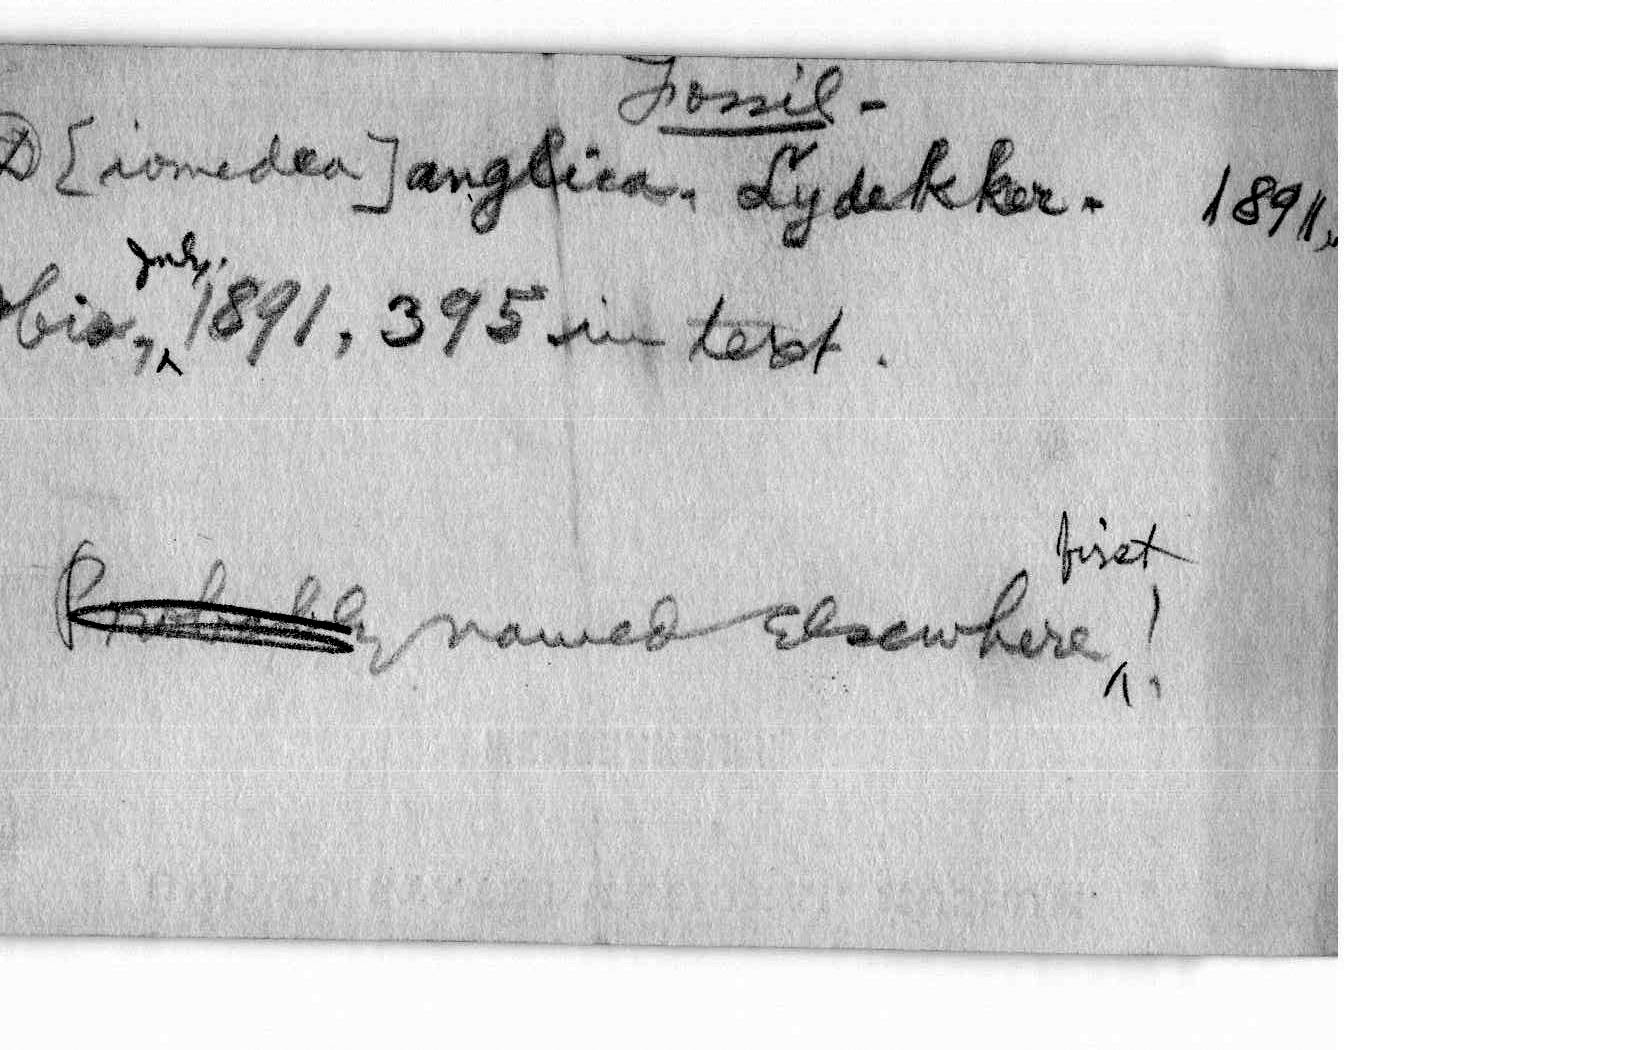 Fossil -
D[iomedea] anglica. Lydekker. 1891.
Ibis, July, 1891, 395 in text.
Probably named Elsewhere first!